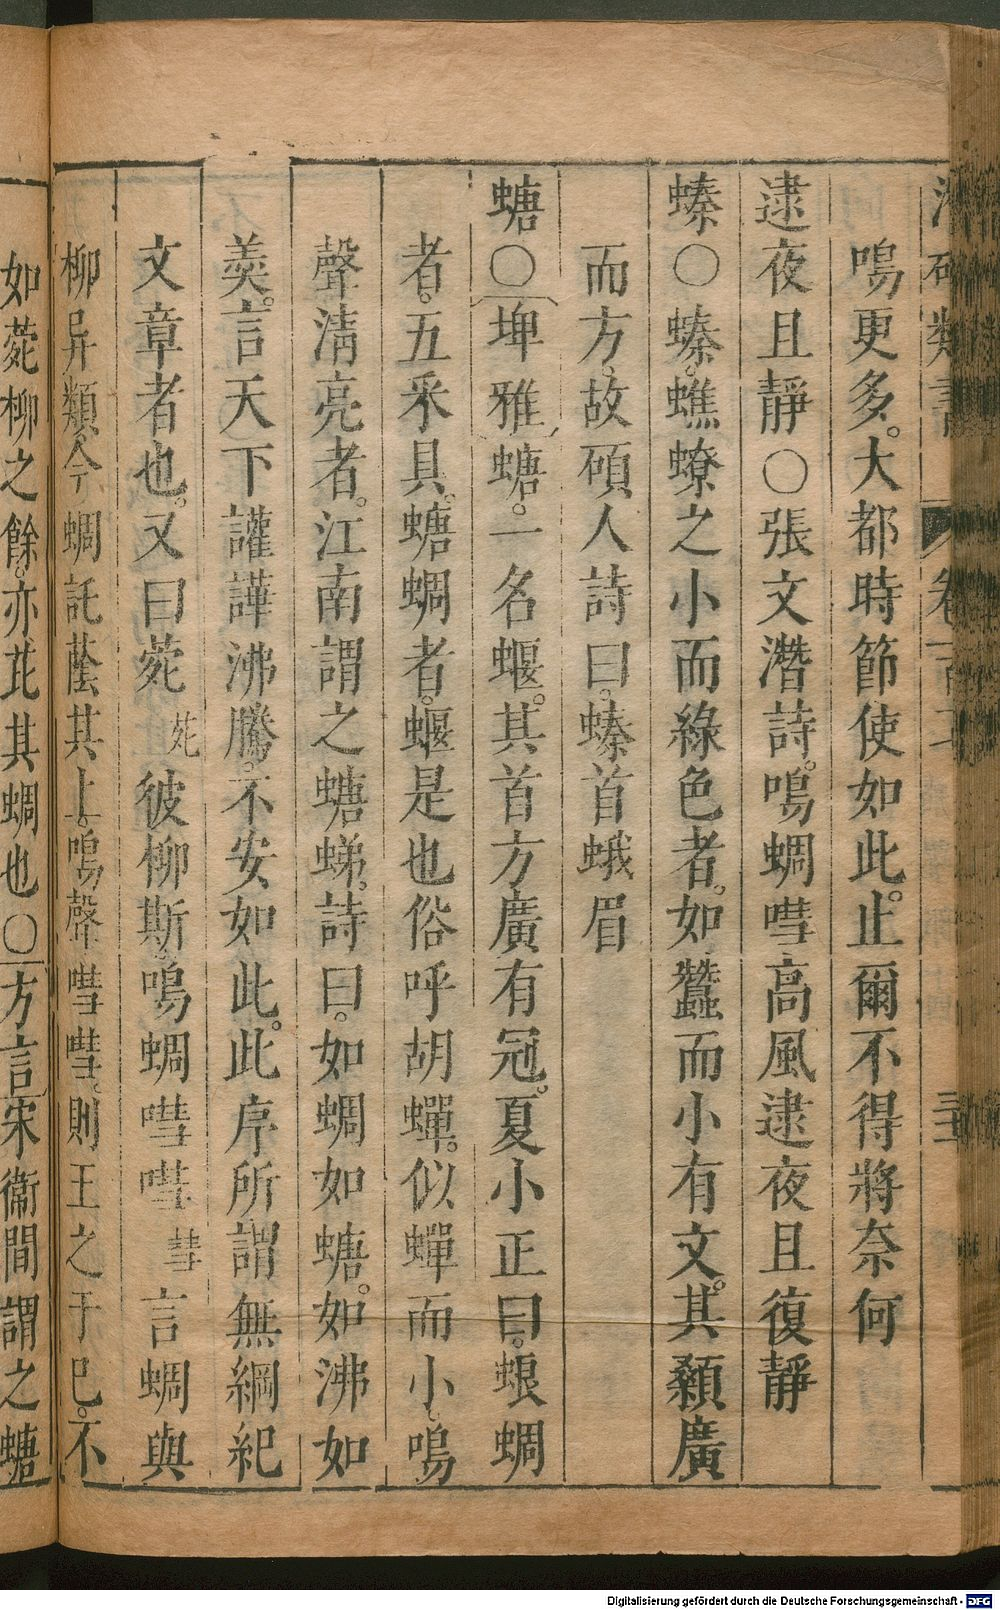 鳴更多大都時節使如此止爾不得將奈何
逮夜且靜○張文潛詩鳴蜩嘒高風逮夜且復靜
螓○螓蟭蟟之小而綠色者如蠶而小有文其顙廣
而方故碩人詩曰螓首蛾眉
螗○埤雅螗一名蝘其首方廣有冠夏小正曰蜋蜩
者五釆具螗蜩者蝘是也俗呼胡蟬似蟬而小鳴
聲清亮者江南謂之螗蛦詩曰如蜩如螗如沸如
羮言天下讙譁沸騰不安如此此序所謂無綱紀
文章者也又曰菀苑彼柳斯鳴蜩嘒嘒彗言蜩與
柳异類今蜩託蔭其上鳴聲嘒嘒則王之于巳不
如菀柳之餘亦芘其蜩也○方言宋衞間謂之螗
Digitalisierung gefördert durch die Deutsche Forschungsgemeinschaft - DFG